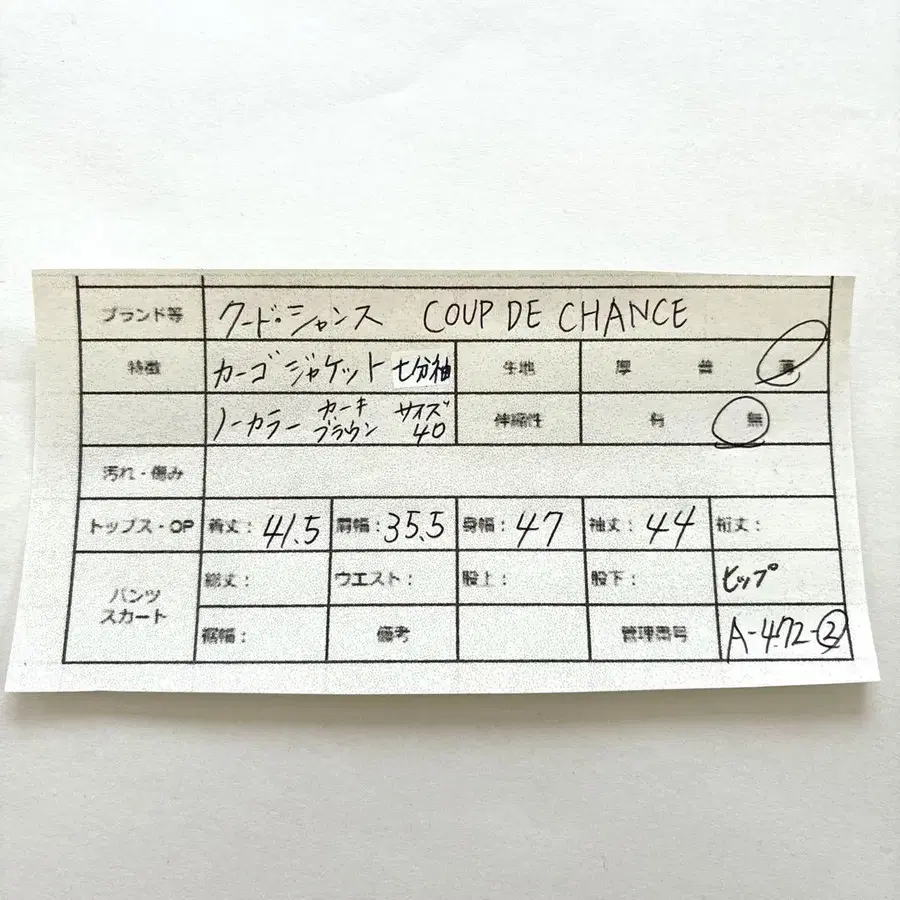 ブランド等 クード・シャンス COUP DE CHANCE
特徴 カーゴジャケット 七分袖 生地 厚 普 薄
ノーカラー カーキブラウン サイズ40 伸縮性 有 無
汚れ・傷み
トップス・OP 着丈：41.5 肩幅：35.5 身幅：47 袖丈：44 裄丈：
パンツスカート 総丈： ウエスト： 股上： 股下： ヒップ
裾幅： 備考 管理番号 A-472-②